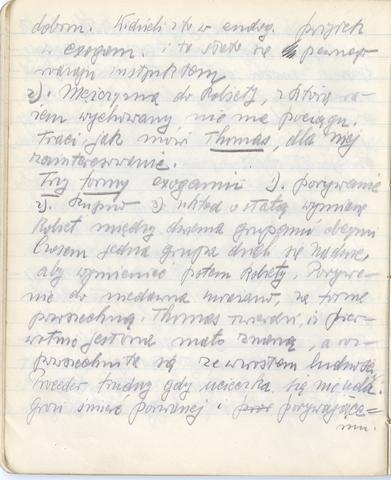 dobom. Widzieli zło w endog. przyrek
w exogam. i to stało się pewnego
rodzaju instynktem
2). Mężczyzna do kobiety, z którą ra-
zem wychowany nie ma pociągu.
Traci jak mówi Thomas, dla niej
zainteresowanie.
Trzy formy exogamii 1). porywanie
2). kupno 3). układ o stałą wymianę
kobiet między dwoma grupami obcymi
Czasem jedna grupa dzieli się na dwie,
aby wymieniać potem kobiety. Porywa-
nie do niedawna uważano, za formę
powszechną. Thomas twierdzi, iż pier-
wotnie jest ona mało znaną, a roz-
powszechniła się ze wzrostem ludności.
Proceder trudny gdy ucieczka się nie uda.
Grozi śmierć porwanej i porywające-
mu.